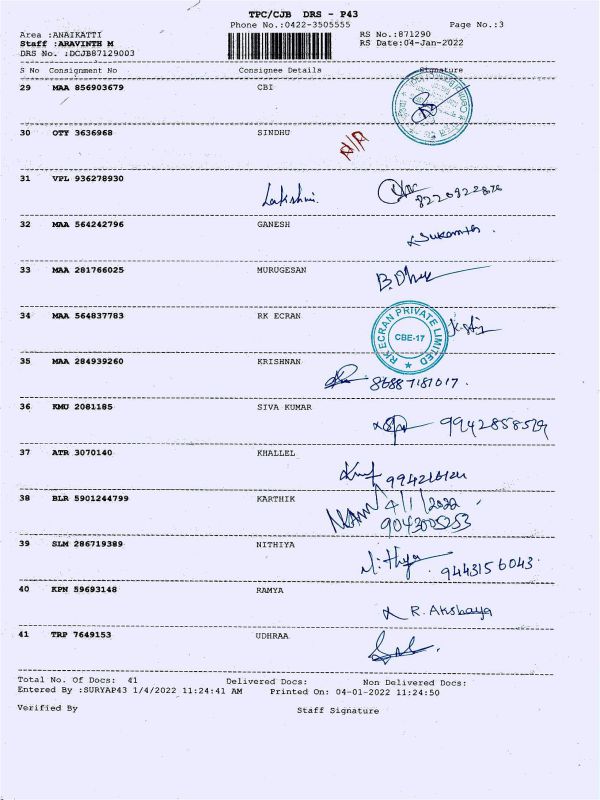 TPC/CJB DRS - P43
Phone No.:0422-3505555 Page No.:3
Area :ANAIKATTI RS No.:871290
Staff :ARAVINTH M RS Date:04-Jan-2022
DRS No. :DCJB87129003
S No Consignment No Consignee Details Signature
29 MAA 856903679 CBI
30 OTY 3636968 SINDHU
31 VPL 936278930 Lakshmi. 8220922876
32 MAA 564242796 GANESH Sukanth .
33 MAA 281766025 MURUGESAN
34 MAA 564837783 RK ECRAN RK ECRAN PRIVATE LIMITED CBE-17
35 MAA 284939260 KRISHNAN
36 KMU 2081185 SIVA KUMAR
37 ATR 3070140 KHALLEL
38 BLR 5901244799 KARTHIK 4/1/2022
9043005253
39 SLM 286719389 NITHIYA Nithya . 9443156043
40 KPN 59693148 RAMYA R. Akshaya
41 TRP 7649153 UDHRAA
Total No. Of Docs: 41 Delivered Docs: Non Delivered Docs:
Entered By :SURYAP43 1/4/2022 11:24:41 AM Printed On: 04-01-2022 11:24:50
Verified By Staff Signature